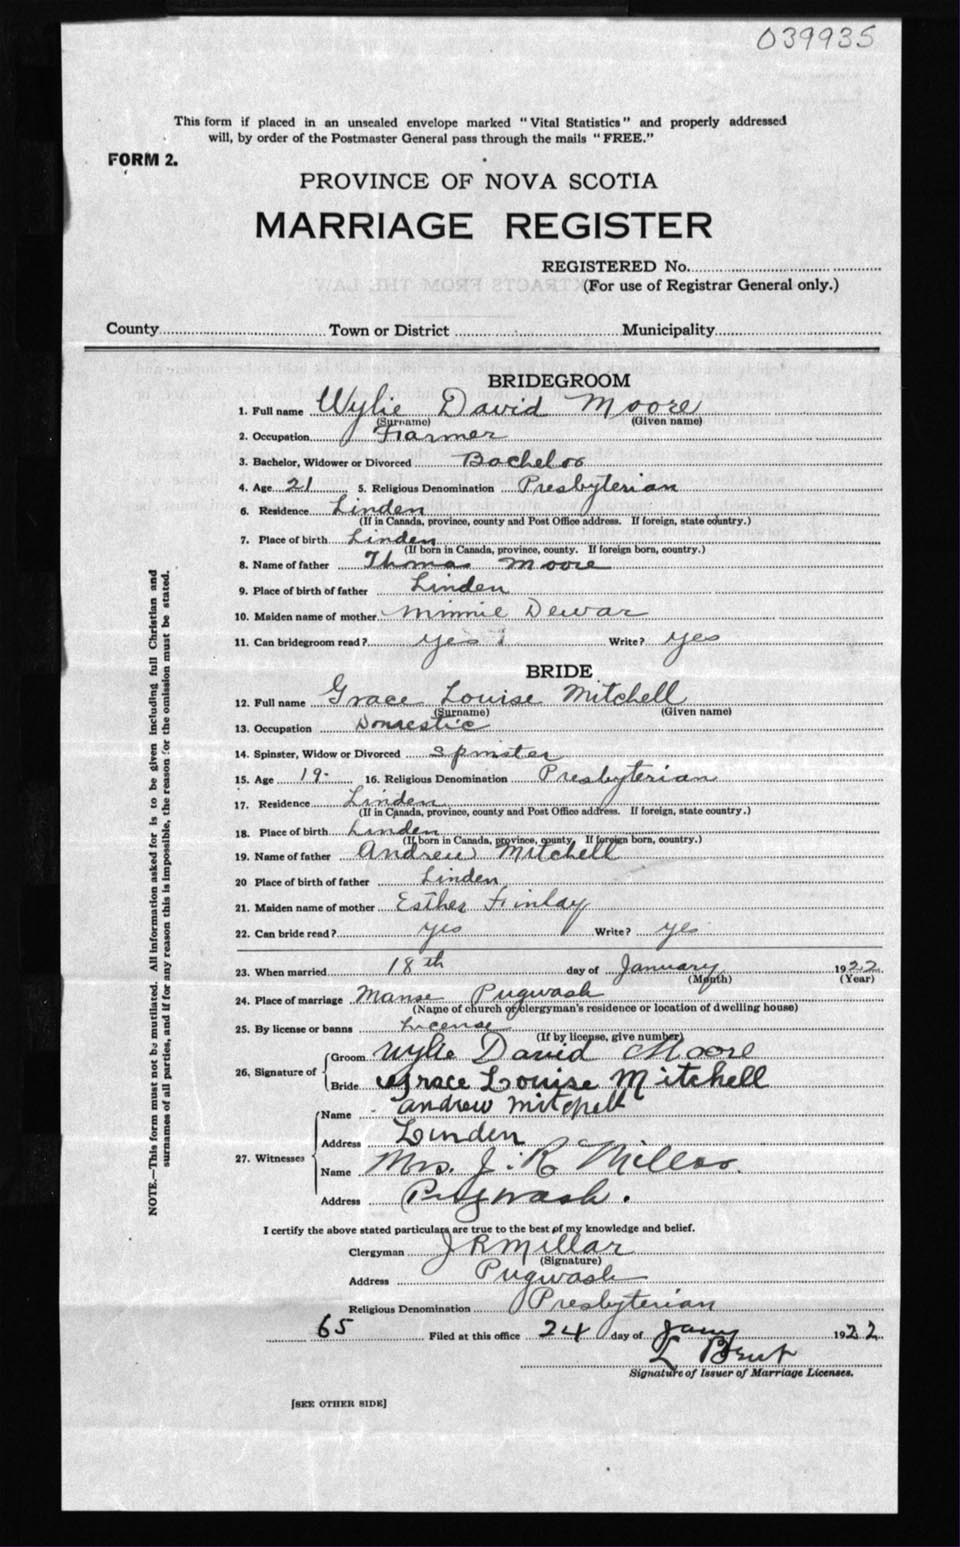 039935
This form if placed in an unsealed envelope marked "Vital Statistics" and properly addressed
will, by order of the Postmaster General pass through the mails "FREE."
FORM 2.
PROVINCE OF NOVA SCOTIA
MARRIAGE REGISTER
REGISTERED No.
(For use of Registrar General only.)
County Town or District Municipality
BRIDEGROOM
1. Full name Wylie David Moore
(Surname) (Given name)
2. Occupation Farmer
3. Bachelor, Widower or Divorced Bachelor
4. Age 21 5. Religious Denomination Presbyterian
6. Residence Linden
(If in Canada, province, county and Post Office address. If foreign, state country.)
7. Place of birth Linden
(If born in Canada, province, county. If foreign born, country.)
8. Name of father Thomas Moore
9. Place of birth of father Linden
10. Maiden name of mother Minnie Dewar
11. Can bridegroom read? yes Write? yes
BRIDE
12. Full name Grace Louise Mitchell
(Surname) (Given name)
13. Occupation Domestic
14. Spinster, Widow or Divorced Spinster
15. Age 19 16. Religious Denomination Presbyterian
17. Residence Linden
(If in Canada, province, county and Post Office address. If foreign, state country.)
18. Place of birth Linden
(If born in Canada, province, county. If foreign born, country.)
19. Name of father Andrew Mitchell
20 Place of birth of father Linden
21. Maiden name of mother Esther Finlay
22. Can bride read? yes Write? yes
23. When married 18th day of January 1922
(Month) (Year)
24. Place of marriage Manse Pugwash
(Name of church or clergyman's residence or location of dwelling house)
25. By license or banns License
(If by license, give number)
26. Signature of
Groom Wylie David Moore
Bride Grace Louise Mitchell
27. Witnesses
Name Andrew Mitchell
Address Linden
Name Mrs. J. R. Millar.
Address Pugwash.
I certify the above stated particulars are true to the best of my knowledge and belief.
Clergyman J R Millar
(Signature)
Address Pugwash
Religious Denomination Presbyterian
65 Filed at this office 24 day of Jany 1922
L Brent
Signature of Issuer of Marriage Licenses.
[SEE OTHER SIDE]
NOTE.—This form must not be mutilated. All information asked for is to be given including full Christian and
surnames of all parties, and if for any reason this is impossible, the reason for the omission must be stated.